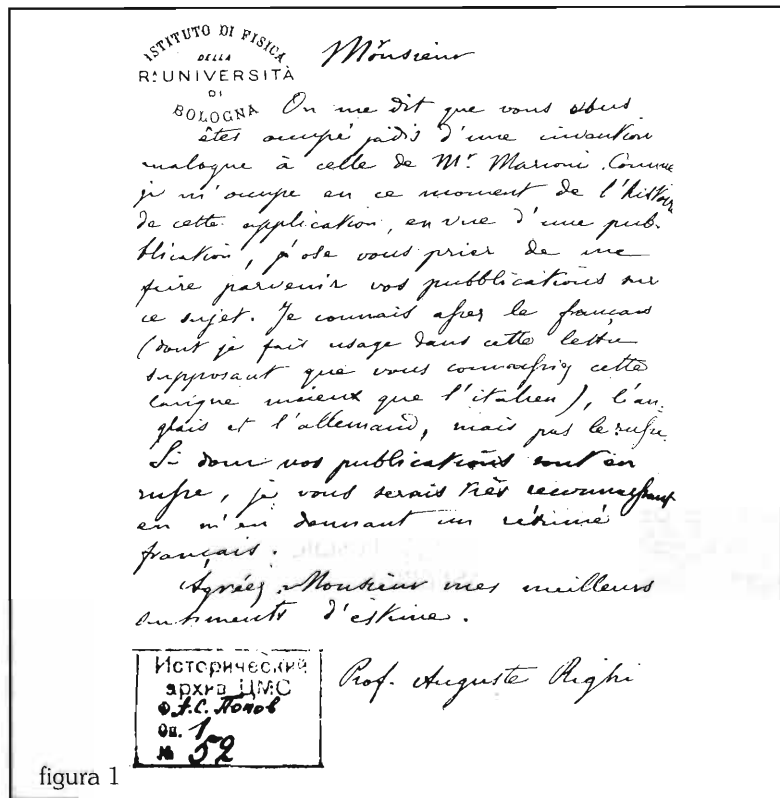 ISTITUTO DI FISICA
DELLA
Rª UNIVERSITÀ
DI
BOLOGNA
Monsieur
On me dit que vous vous
êtes occupé jadis d'une invention
analogue à celle de Mr. Marconi. Comme
je m'occupe en ce moment de l'histoire
de cette application, en vue d'une pub-
blication, j'ose vous prier de me
faire parvenir vos pubblications sur
ce sujet. Je connais assez le français
(dont je fais usage dans cette lettre
supposant que vous connaissiez cette
langue mieux que l'italien), l'an-
glais et l'allemand, mais pas le russe.
Si donc vos publications sont en
russe, je vous serais très reconnaissant
en m'en donnant un résumé
français.
Agréez, Monsieur mes meilleurs
sentiments d'estime.
Prof. Auguste Righi
Исторический
архив ЦМС
Ф. А.С. Попов
Оп. 1
№ 52
figura 1